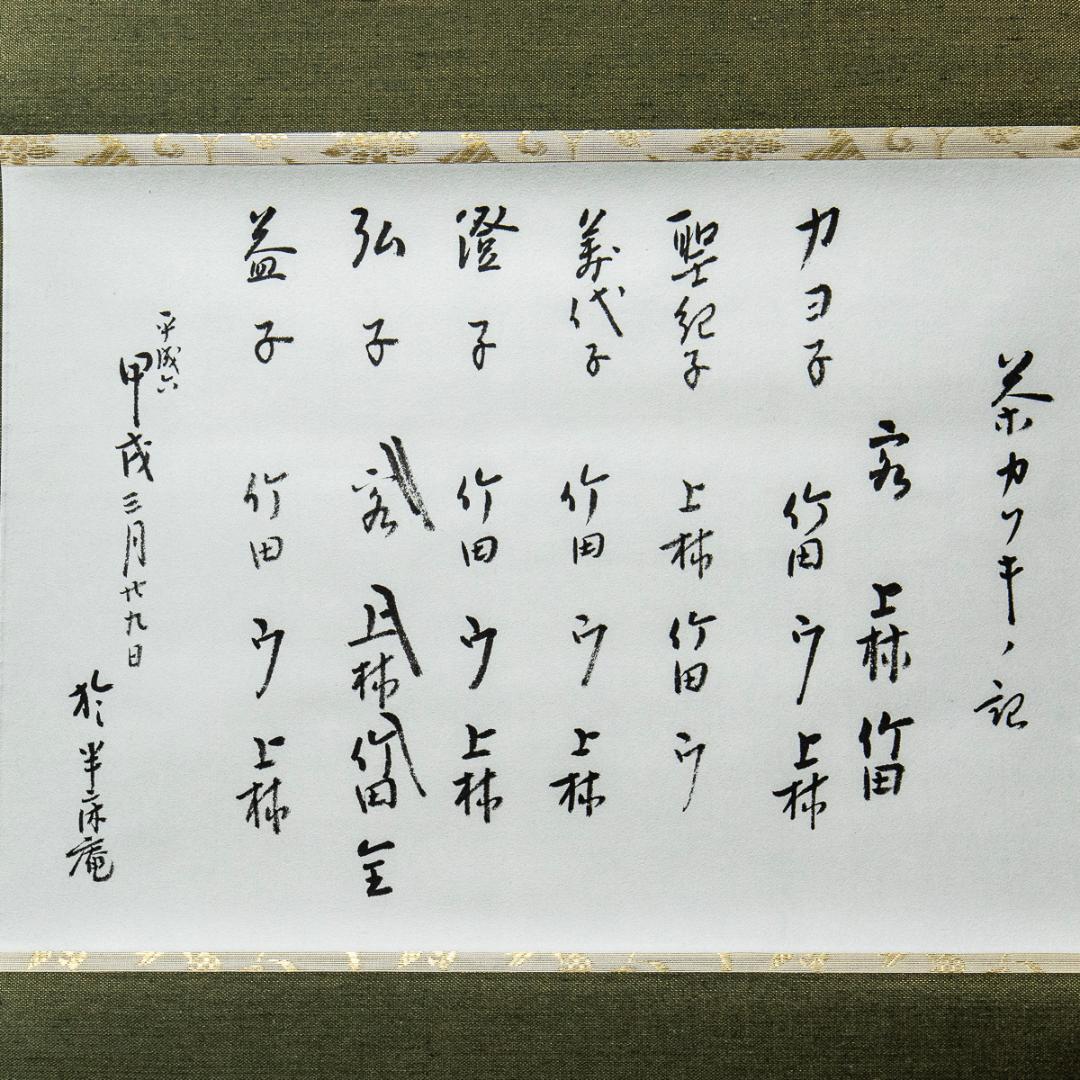 茶カフキノ記
客 上林 竹田
カヨ子 竹田 ウ 上林
聖紀子 上林 竹田 ウ
美代子 竹田 ウ 上林
澄子 竹田 ウ 上林
弘子 客 上林 竹田 全
益子 竹田 ウ 上林
平成六
甲戌三月廿九日
於半床庵